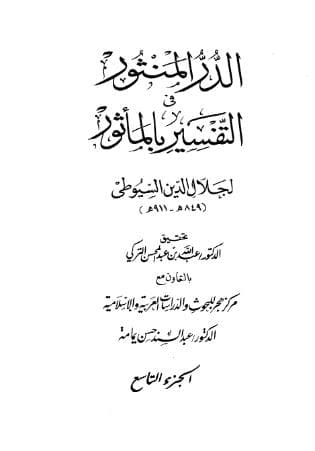 الدر المنثور
فى
التفسير بالمأثور
لجلال الدين السيوطى
(٨٤٩هـ - ٩١١هـ)
تحقيق
الدكتور/عبدالله بن عبدالمحسن التركى
بالتعاون مع
مركز هجر للبحوث والدراسات العربية والإسلامية
الدكتور/عبدالسند حسن يمامة
الجزء التاسع